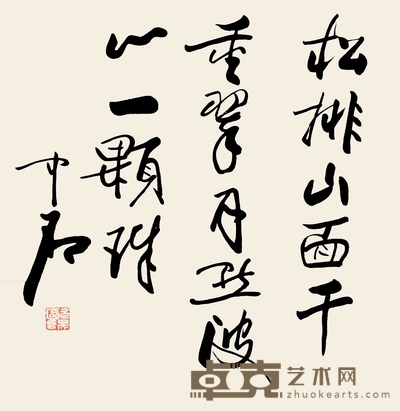 松排山面千
重翠月点波
心一颗珠
中石
卓克艺术网
zhuokearts.com